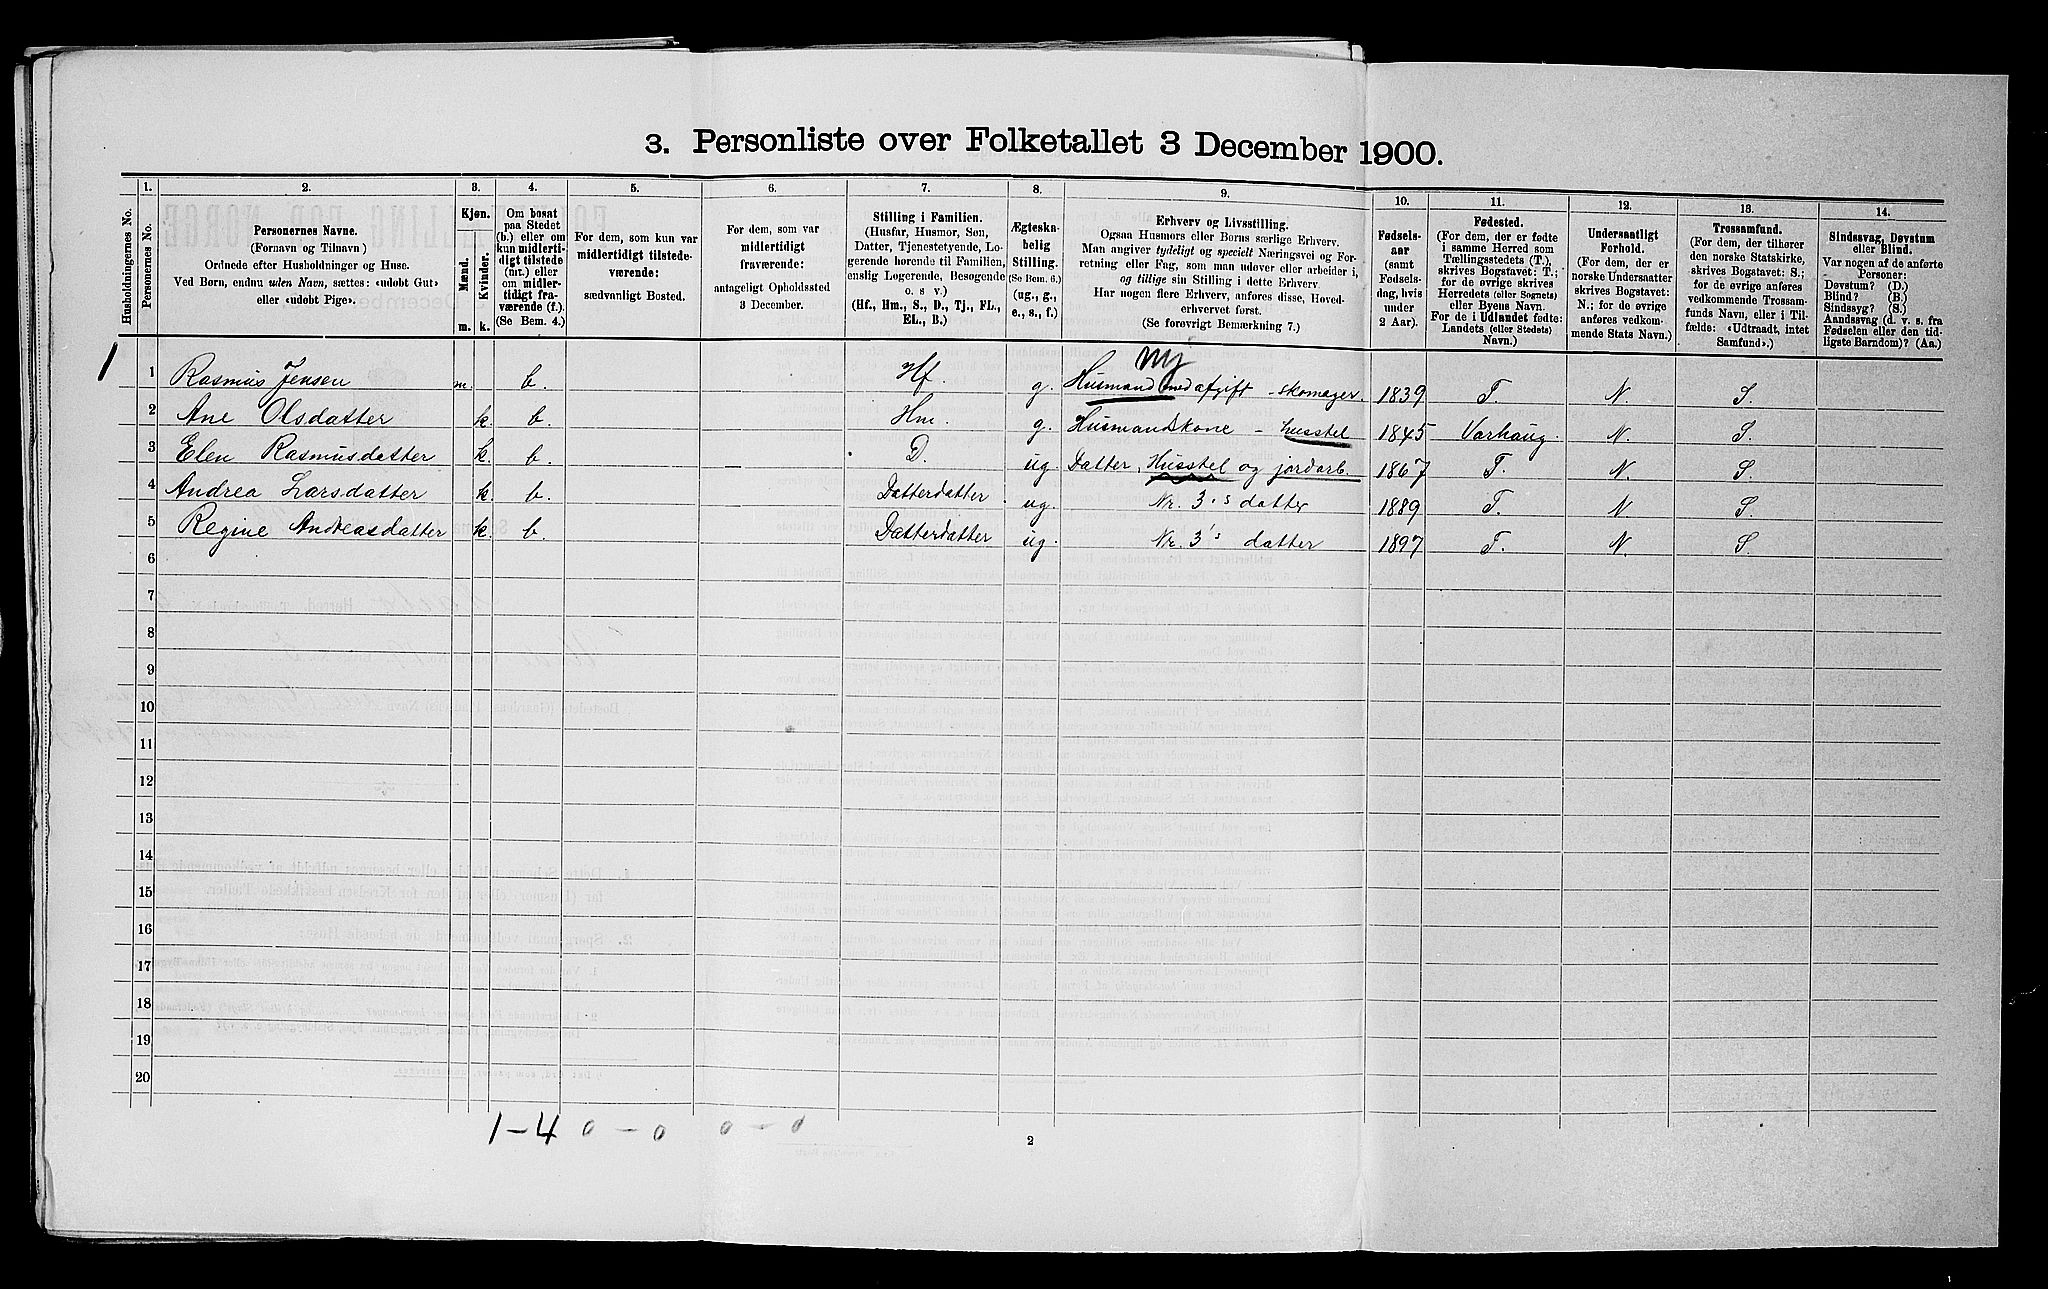 3. Personliste over Folketallet 3 December 1900.
Husholdningernes No.
1. Personernes No.
2. Personernes Navne.
(Fornavn og Tilnavn)
Ordnede efter Husholdninger og Huse.
Ved Børn, endnu uden Navn, sættes: «udobt Gut»
eller «udobt Pige».
3. Kjøn.
Mænd. m.
Kvinder. k.
4. Om bosat
paa Stedet
(b.) eller om
kun midlerti-
digt tilstede
(mt.) eller
om midler-
tidigt fra-
værende (f.)
(Se Bem. 4.)
5. For dem, som kun var
midlertidigt tilstede-
værende:
sædvanligt Bosted.
6. For dem, som var
midlertidigt
fraværende:
antageligt Opholdssted
3 December.
7. Stilling i Familien.
(Husfar, Husmor, Søn,
Datter, Tjenestetyende, Lo-
gerende hørende til Familien,
enslig Logerende, Besøgende
o. s. v.)
(Hf., Hm., S., D., Tj., FL.,
EL., B.)
8. Ægteska-
belig
Stilling.
(Se Bem. 6.)
(ug., g.,
e., s., f.)
9. Erhverv og Livsstilling.
Ogsaa Husmors eller Børns særlige Erhverv.
Man angiver tydeligt og specielt Næringsvei og For-
retning eller Fag, som man udøver eller arbeider i,
og tillige sin Stilling i dette Erhverv.
Har nogen flere Erhverv, anføres disse, Hoved-
erhvervet først.
(Se forøvrigt Bemærkning 7.)
10. Fødsels-
aar
(samt
Fødsels-
dag, hvis
under
2 Aar).
11. Fødested.
(For dem, der er fødte
i samme Herred som
Tællingsstedets (T.),
skrives Bogstavet: T.;
for de øvrige skrives
Herredets (eller Sognets)
eller Byens Navn.
For de i Udlandet fødte:
Landets (eller Stedets)
Navn.)
12. Undersaatligt
Forhold.
(For dem, der er
norske Undersatter
skrives Bogstavet:
N.; for de øvrige
anføres vedkom-
mende Stats Navn.)
13. Trossamfund.
(For dem, der tilhører
den norske Statskirke,
skrives Bogstavet: S.;
for de øvrige anføres
vedkommende Trossam-
funds Navn, eller i Til-
fælde: «Udtraadt, intet
Samfund».)
14. Sindssvag, Døvstum
eller Blind.
Var nogen af de anførte
Personer:
Døvstum? (D.)
Blind? (B.)
Sindssyg? (S.)
Aandssvag (d. v. s. fra
Fødselen eller den tid-
ligste Barndom)? (Aa.)
nij
1 1 Rasmus Jensen m. b. Hf. g. Husmand med afgift - skomager. 1839 T. N. S.
2 Ane Olsdatter k. b. Hm. g. Husmandskone - husstel 1845 Varhaug. N. S.
3 Elen Rasmusdatter k. b. D. ug. Datter, Husstel og jordarb. 1867 T. N. S.
4 Andrea Larsdatter k. b. Datterdatter ug. Nr. 3's datter 1889 T. N S
5 Regine Andreasdatter k. b. Datterdatter ug. Nr. 3's datter 1897 T. N. S
6
7
8
9
10
11
12
13
14
15
16
17
18
19
20
1-4 0-0 0-0
2